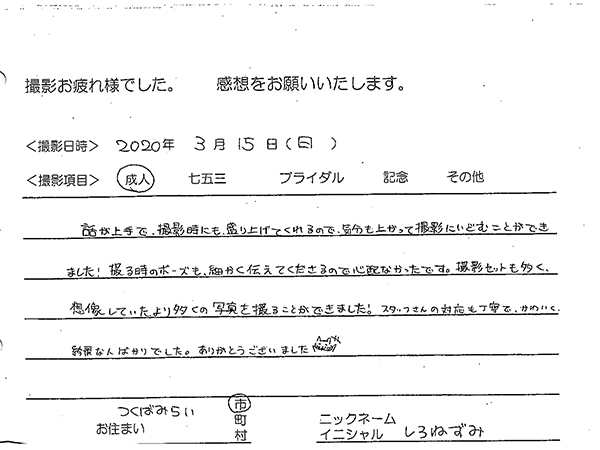 撮影お疲れ様でした。 感想をお願いいたします。
<撮影日時> 2020年 3月 15日(日)
<撮影項目> 成人 七五三 ブライダル 記念 その他
話が上手で、撮影時にも、盛り上げてくれるので、気分も上がって撮影にいどむことができ
ました! 撮る時のポーズも、細かく伝えてくださるので心配なかったです。撮影セットも多く、
想像していたより多くの写真を撮ることができました! スタッフさんの対応も丁寧で、かわいく、
なんばかりでした。ありがとうございました
つくばみらい 市
お住まい 町
村
ニックネーム
イニシャル しろねずみ